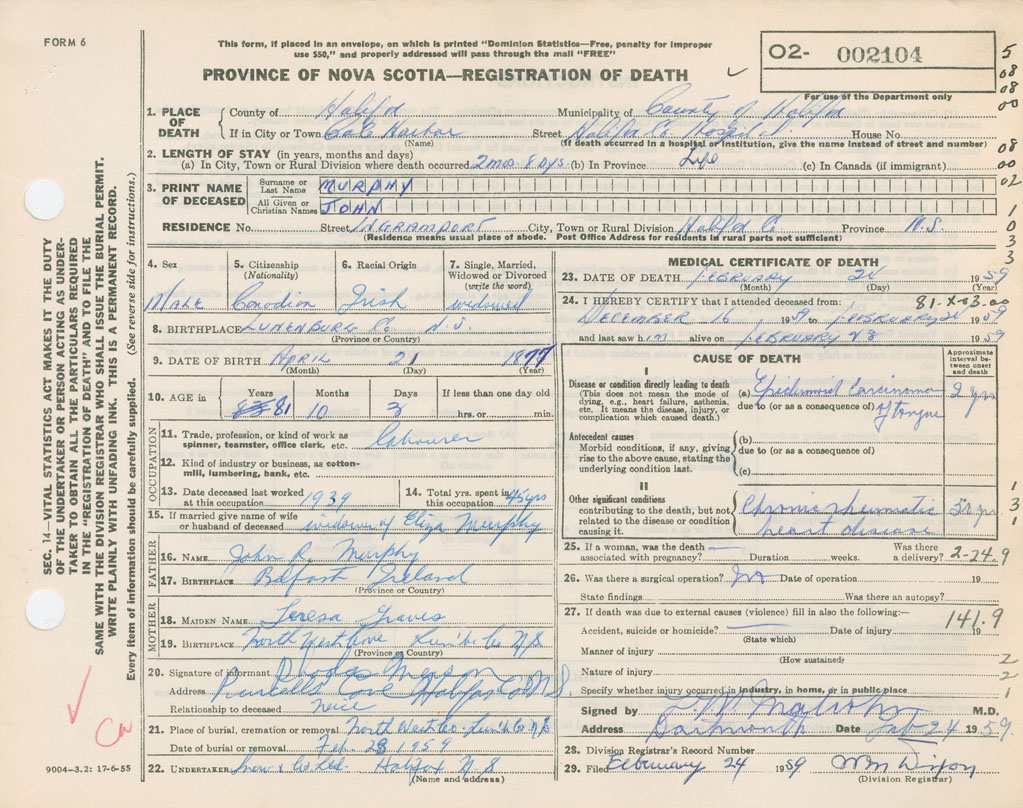 FORM 6
This form, if placed in an envelope, on which is printed "Dominion Statistics—Free, penalty for improper
use $50," and properly addressed will pass through the mail "FREE"
PROVINCE OF NOVA SCOTIA—REGISTRATION OF DEATH
O2- 002104
For use of the Department only
5
08
08
00
08
02
1
0
3
3
1. PLACE OF DEATH
County of Halifax Municipality of County of Halifax
If in City or Town Cole Harbor Street Halifax Co. Hospital House No.
(Name) (If death occurred in a hospital or institution, give the name instead of street and number)
2. LENGTH OF STAY (in years, months and days)
(a) In City, Town or Rural Division where death occurred 2 mos 8 days (b) In Province Life (c) In Canada (if immigrant)
3. PRINT NAME OF DECEASED
Surname or Last Name MURPHY
All Given or Christian Names JOHN
RESIDENCE No. Street INGRAMPORT City, Town or Rural Division Halifax Co. Province N.S.
(Residence means usual place of abode. Post Office Address for residents in rural parts not sufficient)
4. Sex 5. Citizenship (Nationality) 6. Racial Origin 7. Single, Married, Widowed or Divorced (write the word)
Male Canadian Irish widowed
8. BIRTHPLACE Lunenburg Co. N.S.
(Province or Country)
9. DATE OF BIRTH April 21 1877
(Month) (Day) (Year)
10. AGE in Years Months Days If less than one day old
81 10 3 hrs. or min.
OCCUPATION
11. Trade, profession, or kind of work as
spinner, teamster, office clerk, etc. Labourer
12. Kind of industry or business, as cotton-
mill, lumbering, bank, etc.
13. Date deceased last worked
at this occupation 1939
14. Total yrs. spent in
this occupation 45 yrs
15. If married give name of wife
or husband of deceased widower of Eliza Murphy
FATHER
16. NAME John R. Murphy
17. BIRTHPLACE Belfast Ireland
(Province or Country)
MOTHER
18. MAIDEN NAME Teresa Graves
19. BIRTHPLACE North West Cove Lun'b Co N.S
(Province or Country)
20. Signature of informant
Address Purcells Cove Halifax Co N.S.
Relationship to deceased neice
21. Place of burial, cremation or removal North West Co. Lun'b Co N.S
Date of burial or removal Feb. 28 1959
22. UNDERTAKER Snow & Co. Ltd. Halifax N.S
(Name and address)
9004-3.2: 17-6-55
MEDICAL CERTIFICATE OF DEATH
23. DATE OF DEATH February 24 1959
(Month) (Day) (Year)
24. I HEREBY CERTIFY that I attended deceased from: 81-X03.00
December 16 19 to February 24 1959
and last saw him alive on February 23 1959
CAUSE OF DEATH
Approximate interval between onset and death
I
Disease or condition directly leading to death
(This does not mean the mode of
dying, e.g., heart failure, asthenia,
etc. It means the disease, injury, or
complication which caused death.)
(a) Epidermoid Carcinoma 2 yrs
due to (or as a consequence of) of tongue
Antecedent causes
Morbid conditions, if any, giving
rise to the above cause, stating the
underlying condition last.
(b)
due to (or as a consequence of)
(c)
II
Other significant conditions
contributing to the death, but not
related to the disease or condition
causing it.
Chronic rheumatic
heart disease
1
3
1
25. If a woman, was the death
associated with pregnancy? Duration weeks. Was there
a delivery? 2-24.9
26. Was there a surgical operation? Date of operation 19
State findings Was there an autopsy?
27. If death was due to external causes (violence) fill in also the following:— 141.9
Accident, suicide or homicide? Date of injury 19
(State which)
Manner of injury 2
(How sustained)
Nature of injury 2
Specify whether injury occurred in industry, in home, or in public place 1
Signed by M.D.
Address Dartmouth Date Feb 24 1959.
28. Division Registrar's Record Number
29. Filed February 24 1959 Wm Dixon
(Division Registrar)
SEC. 14—VITAL STATISTICS ACT MAKES IT THE DUTY
OF THE UNDERTAKER OR PERSON ACTING AS UNDER-
TAKER TO OBTAIN ALL THE PARTICULARS REQUIRED
IN THE "REGISTRATION OF DEATH" AND TO FILE THE
SAME WITH THE DIVISION REGISTRAR WHO SHALL ISSUE THE BURIAL PERMIT.
WRITE PLAINLY WITH UNFADING INK. THIS IS A PERMANENT RECORD.
Every item of information should be carefully supplied. (See reverse side for instructions.)